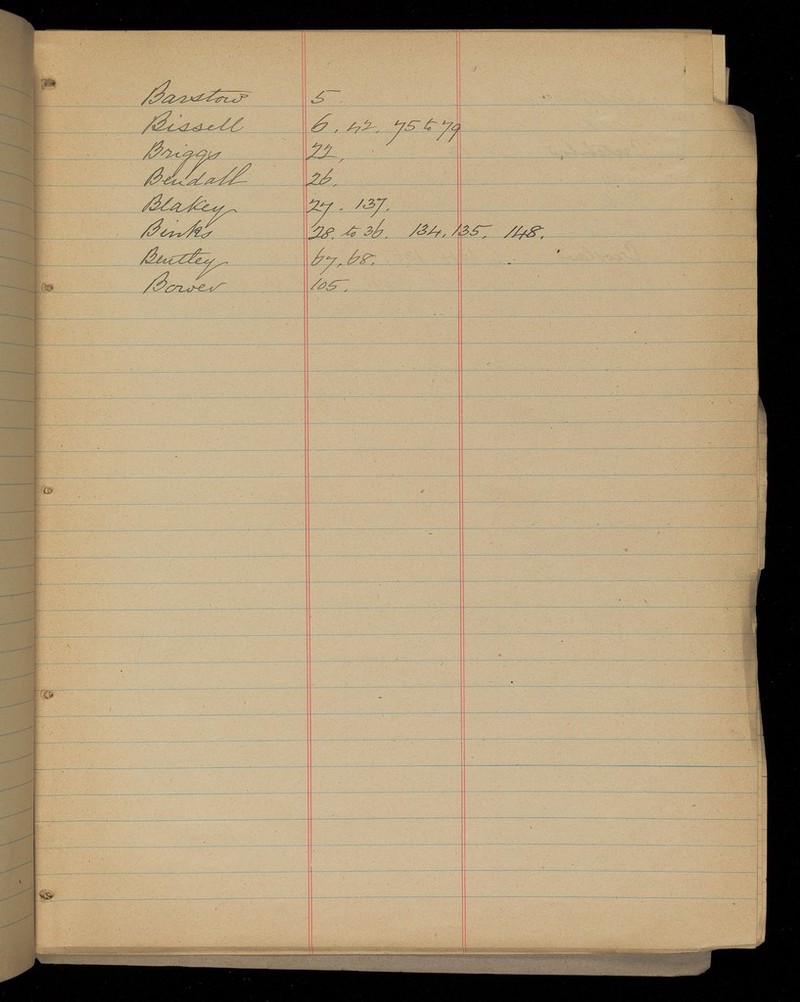 Barstow 5
Bissell 6. 42. 75 to 79
Briggs 22.
Bendall 26.
Blakey 27. 137.
Binks 28. to 36. 134. 135. 148.
Bentley 67. 68.
Bower 105.